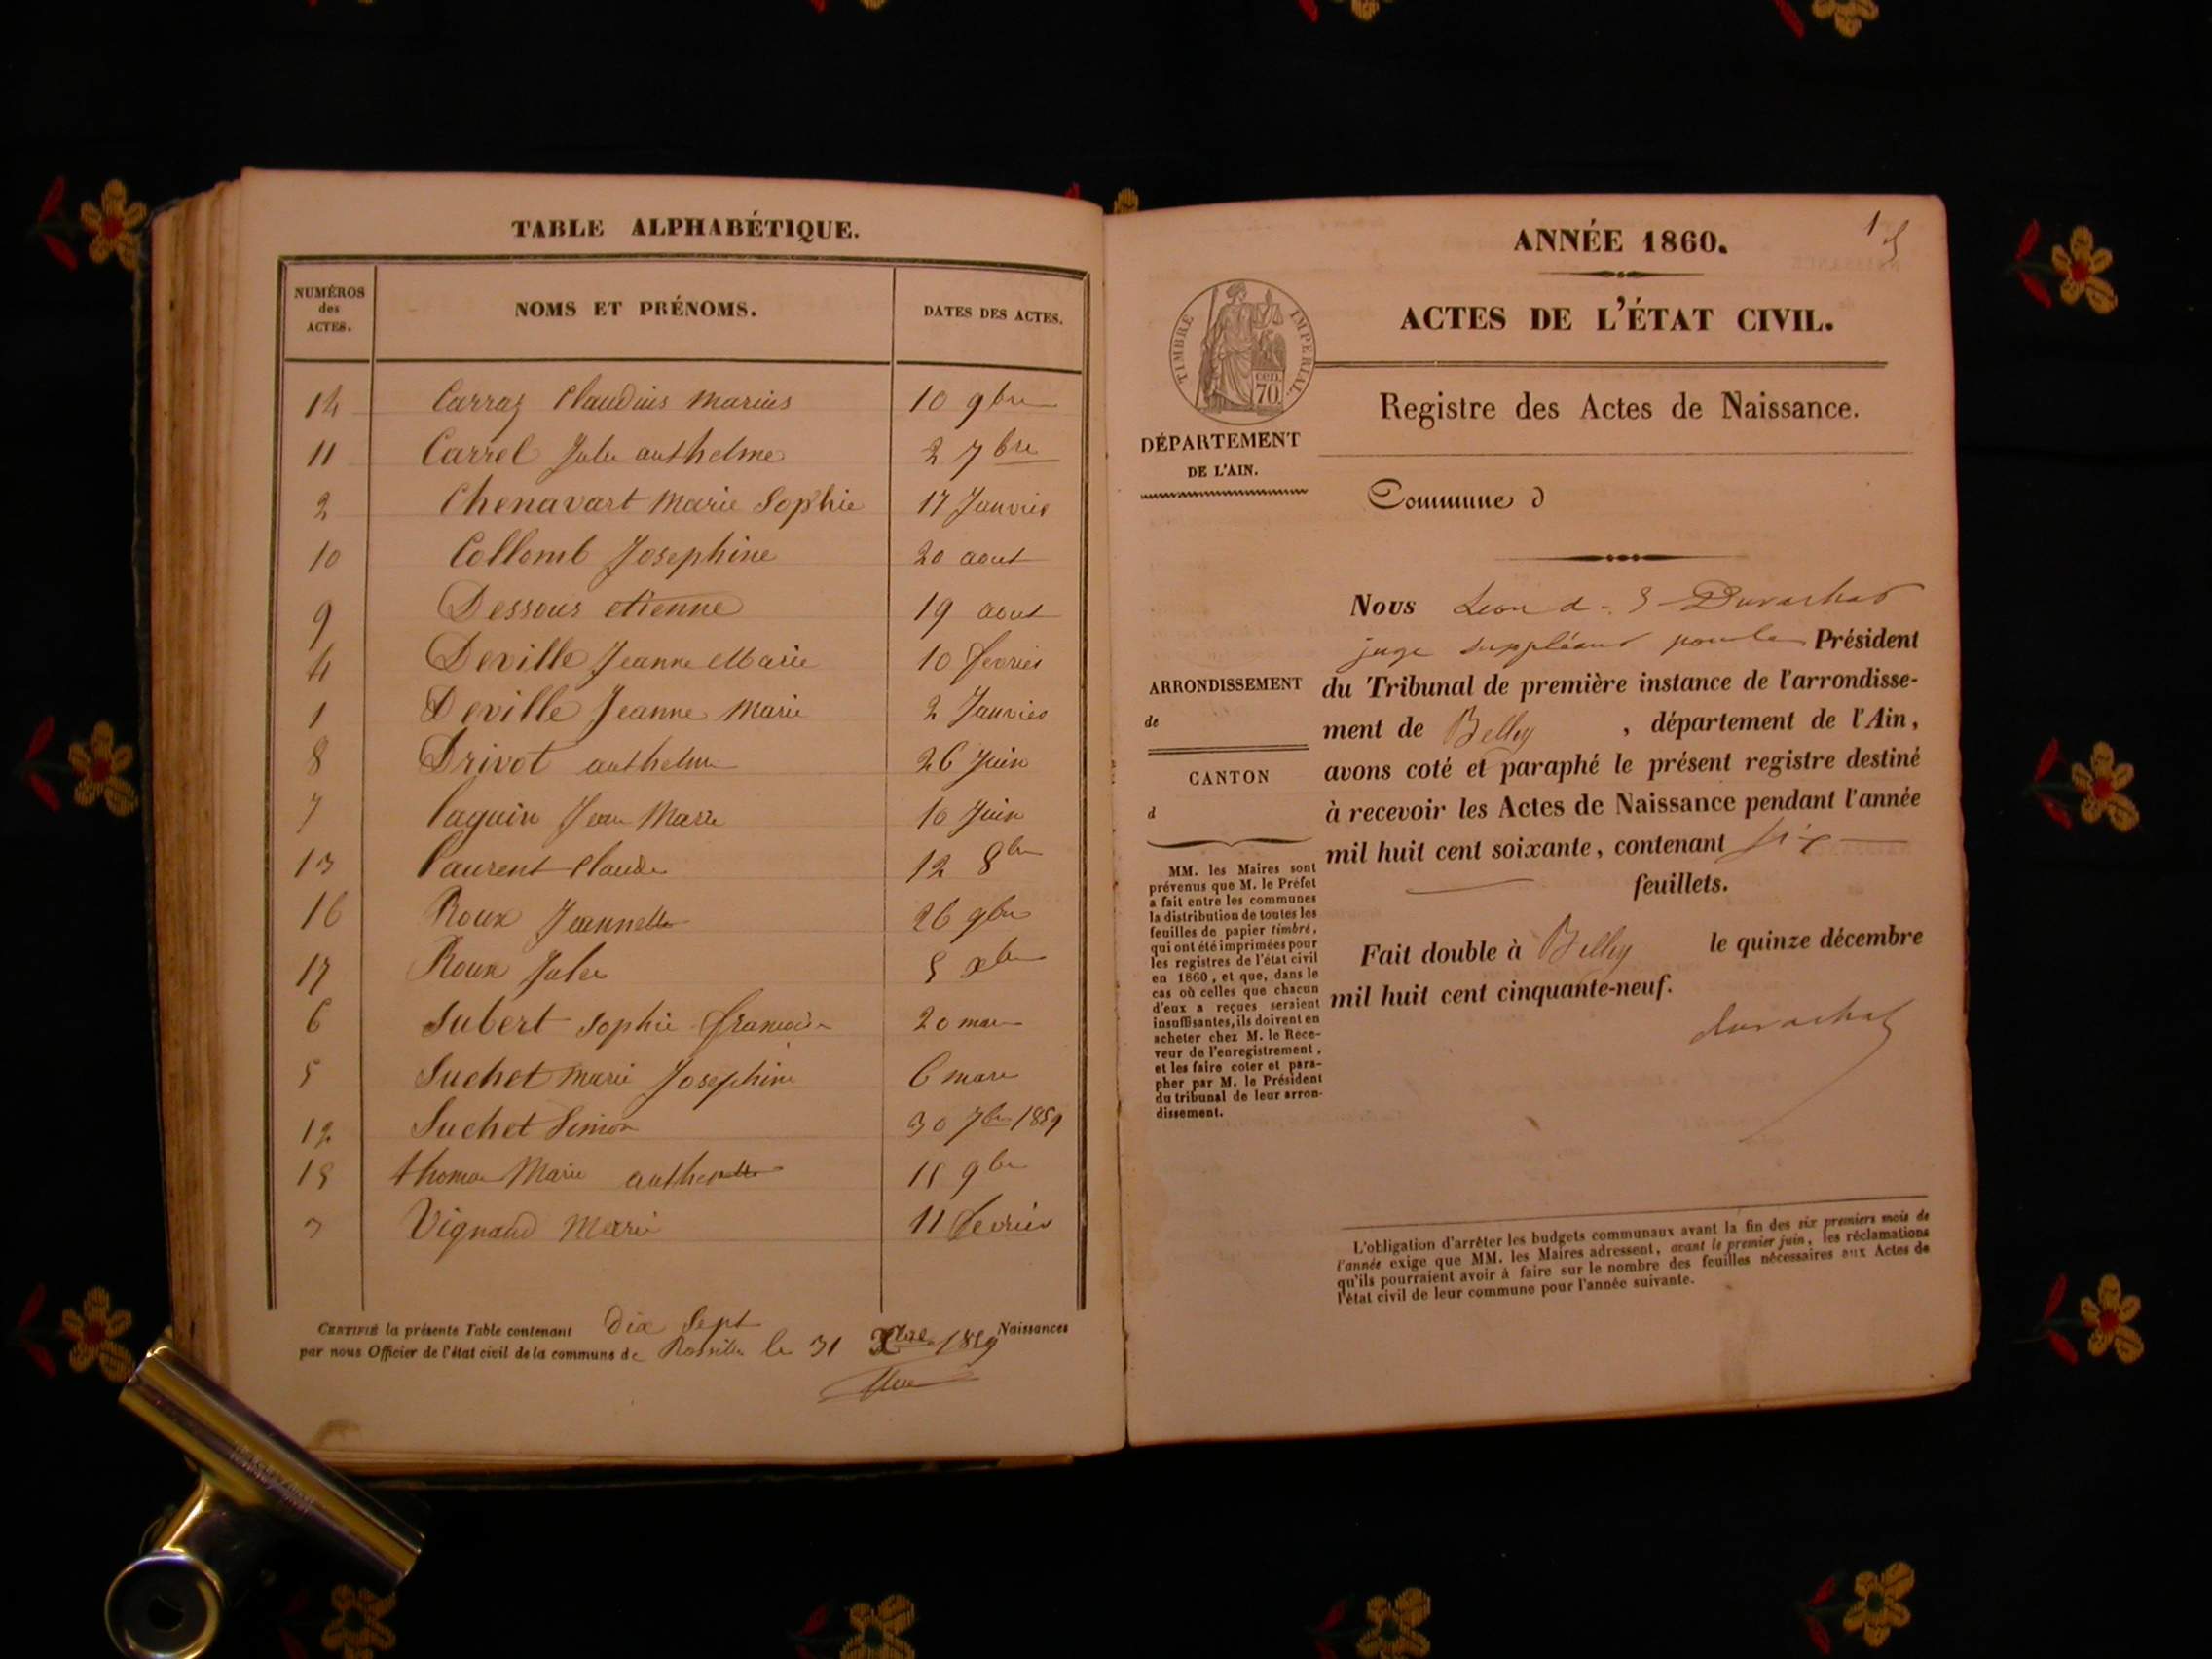 TABLE ALPHABÉTIQUE.
NUMÉROS des ACTES. NOMS ET PRÉNOMS. DATES DES ACTES.
14 Carraz Claudius Marius 10 9bre
11 Carrel Jules anthelme 2 7bre
2 Chenavart Marie Sophie 17 Janvier
10 Collomb Josephine 20 aout
9 Dessous etienne 19 aout
4 Deville Jeanne Marie 10 fevrier
1 Deville Jeanne Marie 2 Janvier
8 Drivot anthelme 26 Juin
7 Jean Marie 10 Juin
13 Laurent Claude 12 8bre
16 Roux Jeannette 26 9bre
17 Roux Jules 5 xbre
6 Subert Sophie 20 mars
5 Suchet Marie Josephine 6 mars
12 Suchet Simon 30 7bre 1859
15 thomas Marie 15 9bre
3 Vignaud Marie 11 fevrier
CERTIFIÉ la présente Table contenant Dix Sept Naissances
par nous Officier de l'état civil de la commune de le 31 Xbre 1859
1
ANNÉE 1860.
ACTES DE L'ÉTAT CIVIL.
TIMBRE IMPERIAL
cen. 70
Registre des Actes de Naissance.
DÉPARTEMENT
DE L'AIN.
Commune d
ARRONDISSEMENT
de
CANTON
d
MM. les Maires sont
prévenus que M. le Préfet
a fait entre les communes
la distribution de toutes les
feuilles de papier timbré,
qui ont été imprimées pour
les registres de l'état civil
en 1860, et que, dans le
cas où celles que chacun
d'eux a reçues seraient
insuffisantes, ils doivent en
acheter chez M. le Rece-
veur de l'enregistrement,
et les faire coter et para-
pher par M. le Président
du tribunal de leur arron-
dissement.
Nous Durochat
juge suppléant pour le Président
du Tribunal de première instance de l'arrondisse-
ment de Belley, département de l'Ain,
avons coté et paraphé le présent registre destiné
à recevoir les Actes de Naissance pendant l'année
mil huit cent soixante, contenant six
feuillets.
Fait double à Belley le quinze décembre
mil huit cent cinquante-neuf.
Durochat
L'obligation d'arrêter les budgets communaux avant la fin des six premiers mois de
l'année exige que MM. les Maires adressent, avant le premier juin, les réclamations
qu'ils pourraient avoir à faire sur le nombre des feuilles nécessaires aux Actes de
l'état civil de leur commune pour l'année suivante.